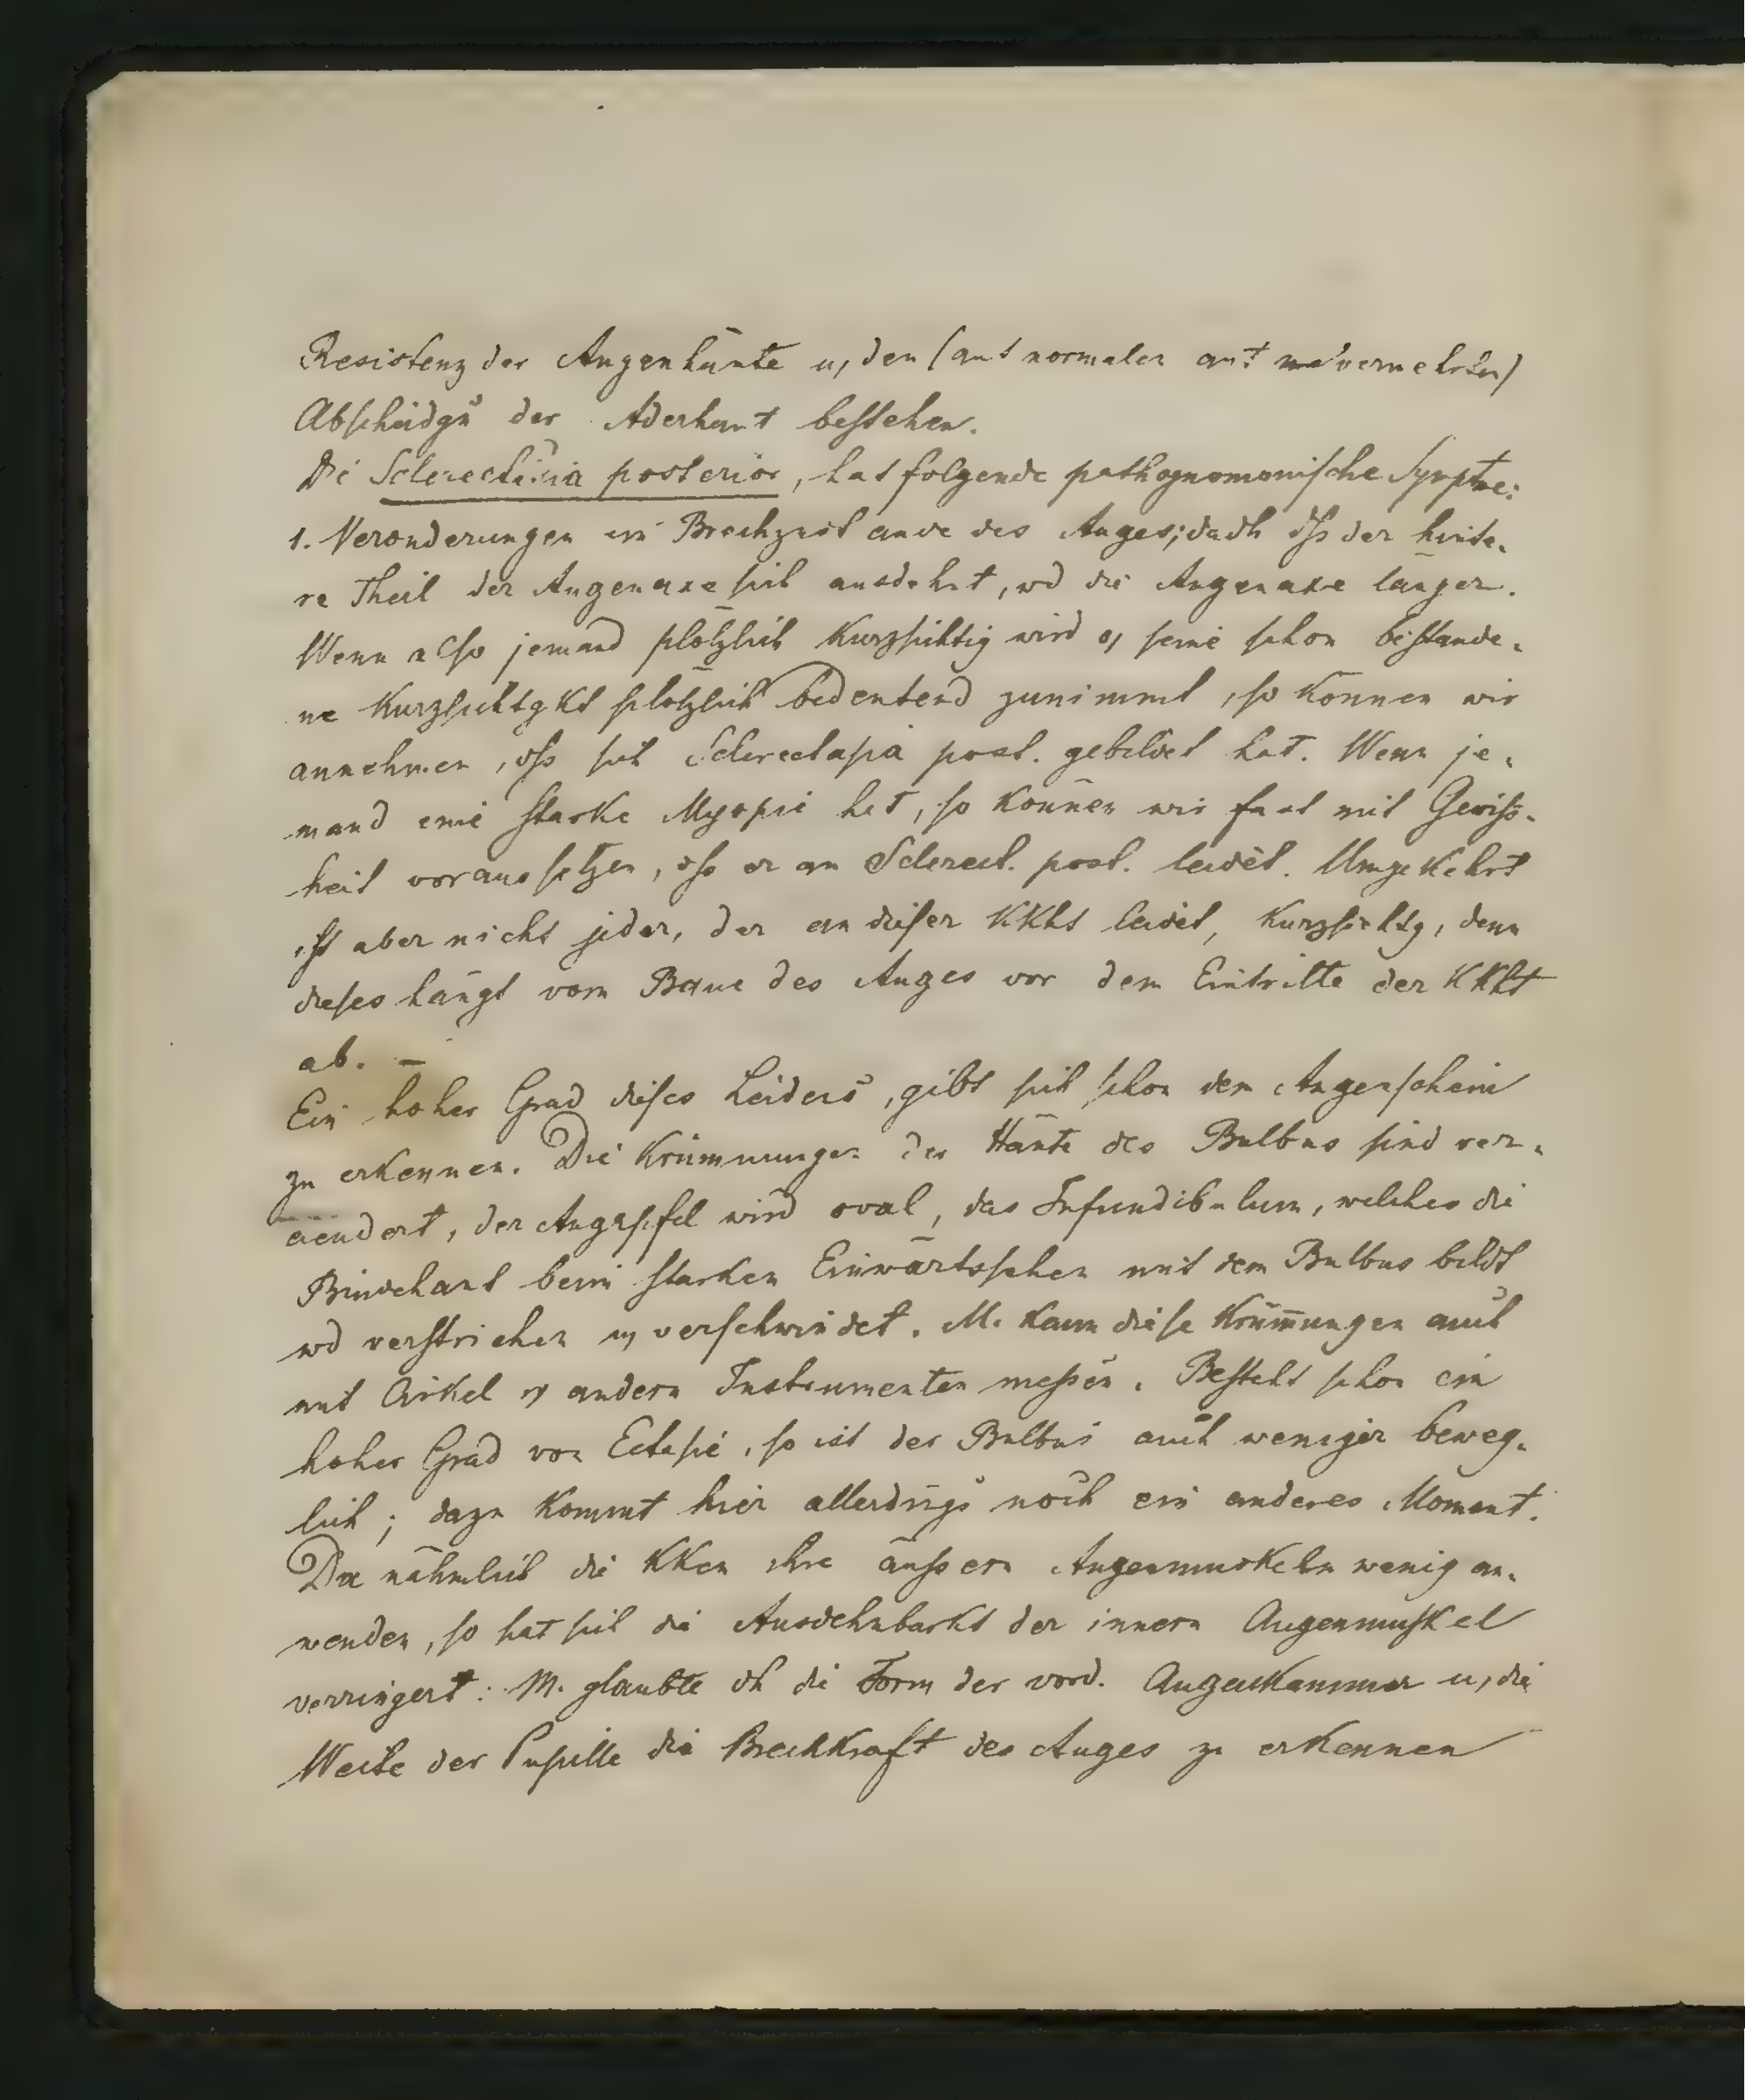 Resistenz der Augenhäute u, den (aut normalen aut vermehrten)
Abscheidgn der Aderhaut bestehen.
Di Sclerectasia posterior, hat folgende pathognomonische Sympt.:
1. Veränderungen im Brechzustande des Auges; dadh dß der hinte-
re Theil der Augenaxe sich ausdehnt, wd die Augenaxe länger.
Wenn also jemand plötzlich Kurzsichtig wird o, seine schon bestande-
ne Kurzsichtgkt plötzlich bedeutend zunimmt, so können wir
annehmen, dß sich Sclerectasia post. gebildet hat. Wenn je-
mand eine starke Myopie hat, so können wir fast mit Gewiss-
heit voraussetzen, dß er an Sclerect. post. leidet. Umgekehrt
ist aber nicht jeder, der an dieser KKht leidet, Kurzsichtg, denn
dieses hängt vom Baue des Auges vor dem Eintritte der KKht
ab. –
Ein hoher Grad dieses Leidens, gibt sich schon dem Augenschein
zu erkennen. Die Krümmungen der Häute des Bulbus sind ver-
aendert, der Augapfel wird oval, das Infundibulum, welches die
Bindehaut beim starken Einwärtssehen mit dem Bulbus bildt
wd verstrichen u, verschwindet. M. kann diese Krümmungen auch
mit Cirkel u, andern Instrumenten messen. Besteht schon ein
hoher Grad von Ectasie, so ist der Bulbus auch weniger beweg-
lich; dazu kommt hier allerdings noch ein anderes Moment.
Da nähmlich die KKen ihre äussern Augenmuskeln wenig an-
wenden, so hat sich die Ausdehnbarkt der innern Augenmuskel
verringert: M. glaubte dh die Form der vord. Augenkammer u, die
Weite der Pupille die Brechkraft des Auges zu erkennen